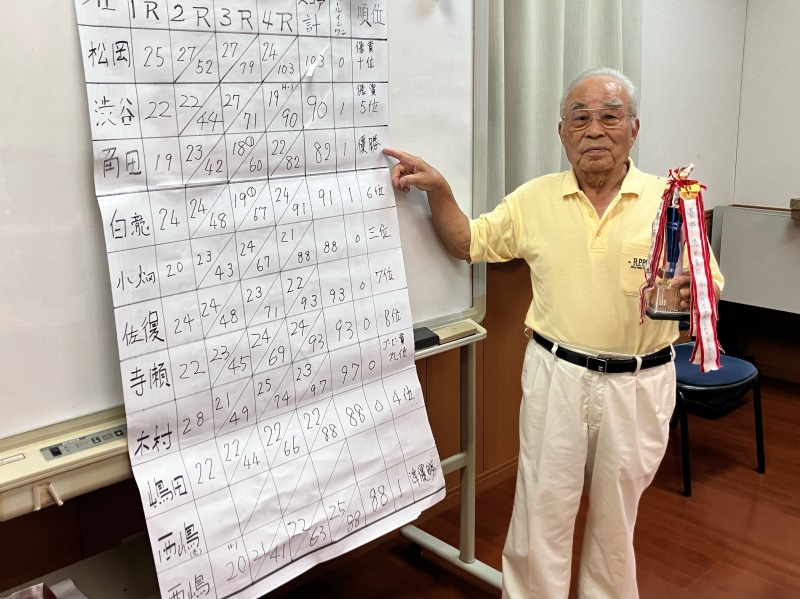 1R 2R 3R 4R 計 順位
松岡 25 27/52 27/79 24/103 103 0 十位
渋谷 22 22/44 27/71 19/90 90 1 5位
角田 19 23/42 18①/60 22/82 82 1 優勝
白瀧 24 24/48 19①/67 24/91 91 1 6位
小畑 20 23/43 24/67 21/88 88 0 三位
佐復 24 24/48 23/71 22/93 93 0 7位
寺瀬 22 23/45 24/69 24/93 93 0 8位
木村 28 21/49 25/74 23/97 97 0 ブービー賞 九位
嶋田 22 22/44 22/66 22/88 88 0 4位
西嶋
西嶋 20 21/41 22/63 25/88 88 1 準優勝